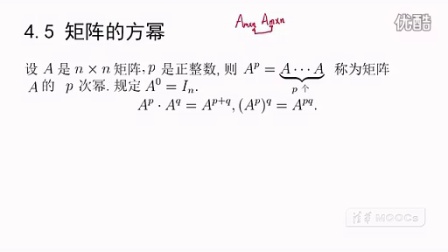 4.5 矩阵的方幂
Aₘₓₙ Aₘₓₙ
优酷
设 A 是 n × n 矩阵, p 是正整数, 则 Aᵖ = A ⋯ A 称为矩阵
p 个
A 的 p 次幂. 规定 A⁰ = Iₙ.
Aᵖ · A^q = A^{p+q}, (Aᵖ)^q = A^{pq}.
清华 MOOCs